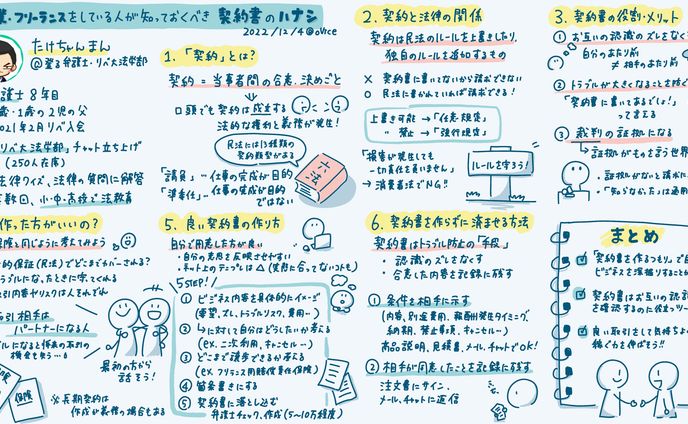 業・フリーランスをしている人が知っておくべき 契約書のハナシ
2022/12/4@office
たけちゃんまん
@登る弁護士・リベ大法学部
護士8年目
歳・1歳の2児の父
021年2月リベ入会
リベ大法学部」チャット立ち上げ
(250人在席)
法律クイズ、法律の質問に解答
1.「契約」とは?
契約 = 当事者間の合意・決めごと
口頭でも契約は成立する
法的な権利と義務が発生!
民法には13種類の
契約類型がある
「請負」…仕事の完成が目的
「準委任」…仕事の完成が目的
ではない
六法
2. 契約と法律の関係
契約は民法のルールを上書きしたり、
独自のルールを追加するもの
× 契約書に書いてないから請求できない
○ 民法に書かれていれば請求できる!
上書き可能 →「任意規定」
〃 禁止 →「強行規定」
「損害が発生しても
一切責任を負いません」
→ 消費者法でNG!!
ルールを守ろう!
3. 契約書の役割・メリット
① お互いの認識のズレをなくす
自分のあたり前
≠ 相手のあたり前
② トラブルが大きくなることを防ぐ
「契約書に書いてあるでしょ!」
って言える
③ 裁判の証拠になる
→証拠がものを言う世界
・証拠がないと請求に
・「知らなかった」は通用
作った方がいいの?
保険と同じように考えてみよう
的保証(民法)でどこまでカバーされる?
ラブルになったときに守ってくれる
引内容やリスクは人それぞれ
取引相手は
パートナーになる人
最初の方から
話そう!
保険
※長期契約は
作成が義務の場合もある
5. 良い契約書の作り方
自分で用意した方が良い
・自分の意思を反映させやすい
・ネット上のテンプレは△(実態に合ってないコトも)
5STEP!
① ビジネス内容を具体的にイメージ
(希望、ズレ、トラブルリスク、費用…)
② ①に対して自分はどうしたいか考える
(ex. 二次利用、キャンセル…)
③ どこまで譲歩できるか考える
(ex. フリランス用賠償責任保険)
④ 箇条書きにする
⑤ 契約書に落とし込む
弁護士チェック、作成(5〜10万程度)
6. 契約書を作らずに済ませる方法
契約書はトラブル防止の「手段」
・認識のズレをなくす
・合意した内容を記録に残す
① 条件を相手に示す
(内容、別途費用、報酬発生タイミング、
納期、禁止事項、キャンセル…)
商品説明、見積書、メール、チャットでOK!
② 相手が同意したことを記録に残す
注文書にサイン、
メール、チャットに返信
まとめ
「契約書を作るつもり」で自
ビジネスを深掘りすること
契約書はお互いの認識
を確認するのに役立つツー
良い取引をして気持ちよ
稼ぐ力を伸ばそう!!